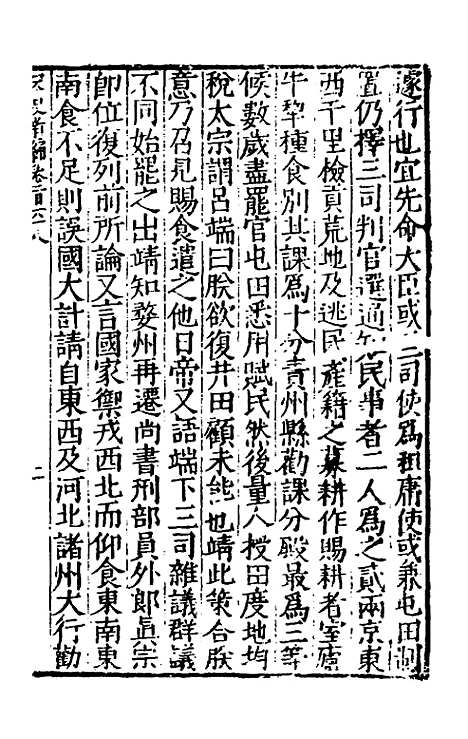 遽行也宜先命大臣或三司使爲租庸使或兼屯田制
置仍擇三司判官選通知民事者二人爲之貳兩京東
西千里檢責荒地及逃民產籍之募耕作賜耕者室廬
牛犂種食別其課爲十分責州縣勸課分殿最爲三等
候數歲盡罷官屯田悉用賦民然後量人授田度地均
稅太宗謂呂端曰朕欲復井田顧未能也靖此策合朕
意乃召見賜食遣之他日帝又語端下三司雜議群議
不同始罷之出靖知婺州再遷尚書刑部員外郎眞宗
卽位復列前所論又言國家禦戎西北而仰食東南東
南食不足則誤國大計請自東西及河北諸州大行勸
宋史新編卷一百六
二